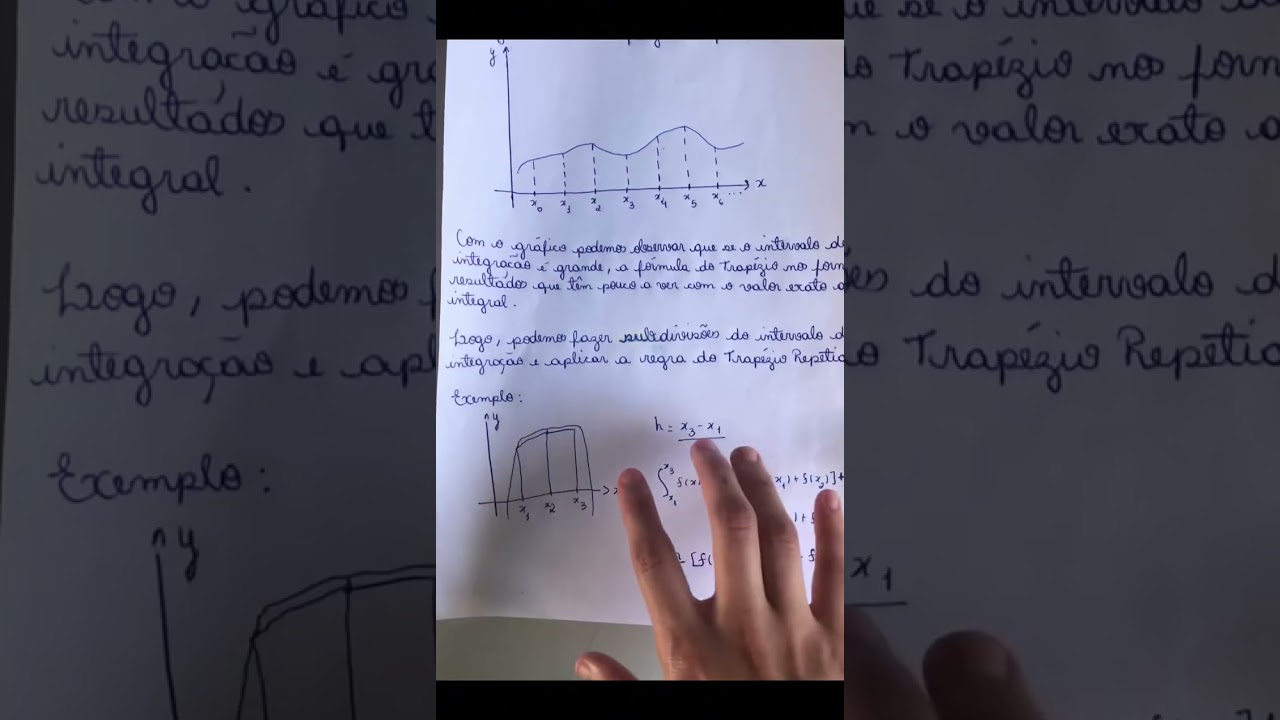 y
x
x0 x1 x2 x3 x4 x5 x6 ...
Com o gráfico podemos observar que se o intervalo de
integração é grande, a fórmula do Trapézio nos
resultados que têm pouco a ver com o valor exato
integral.
Logo, podemos fazer subdivisões do intervalo de
integração e aplicar a regra do Trapézio
Exemplo:
y
x1 x2 x3
h = x3 - x1
∫ x3 x1 f(x)
x1) + f(x2)] +